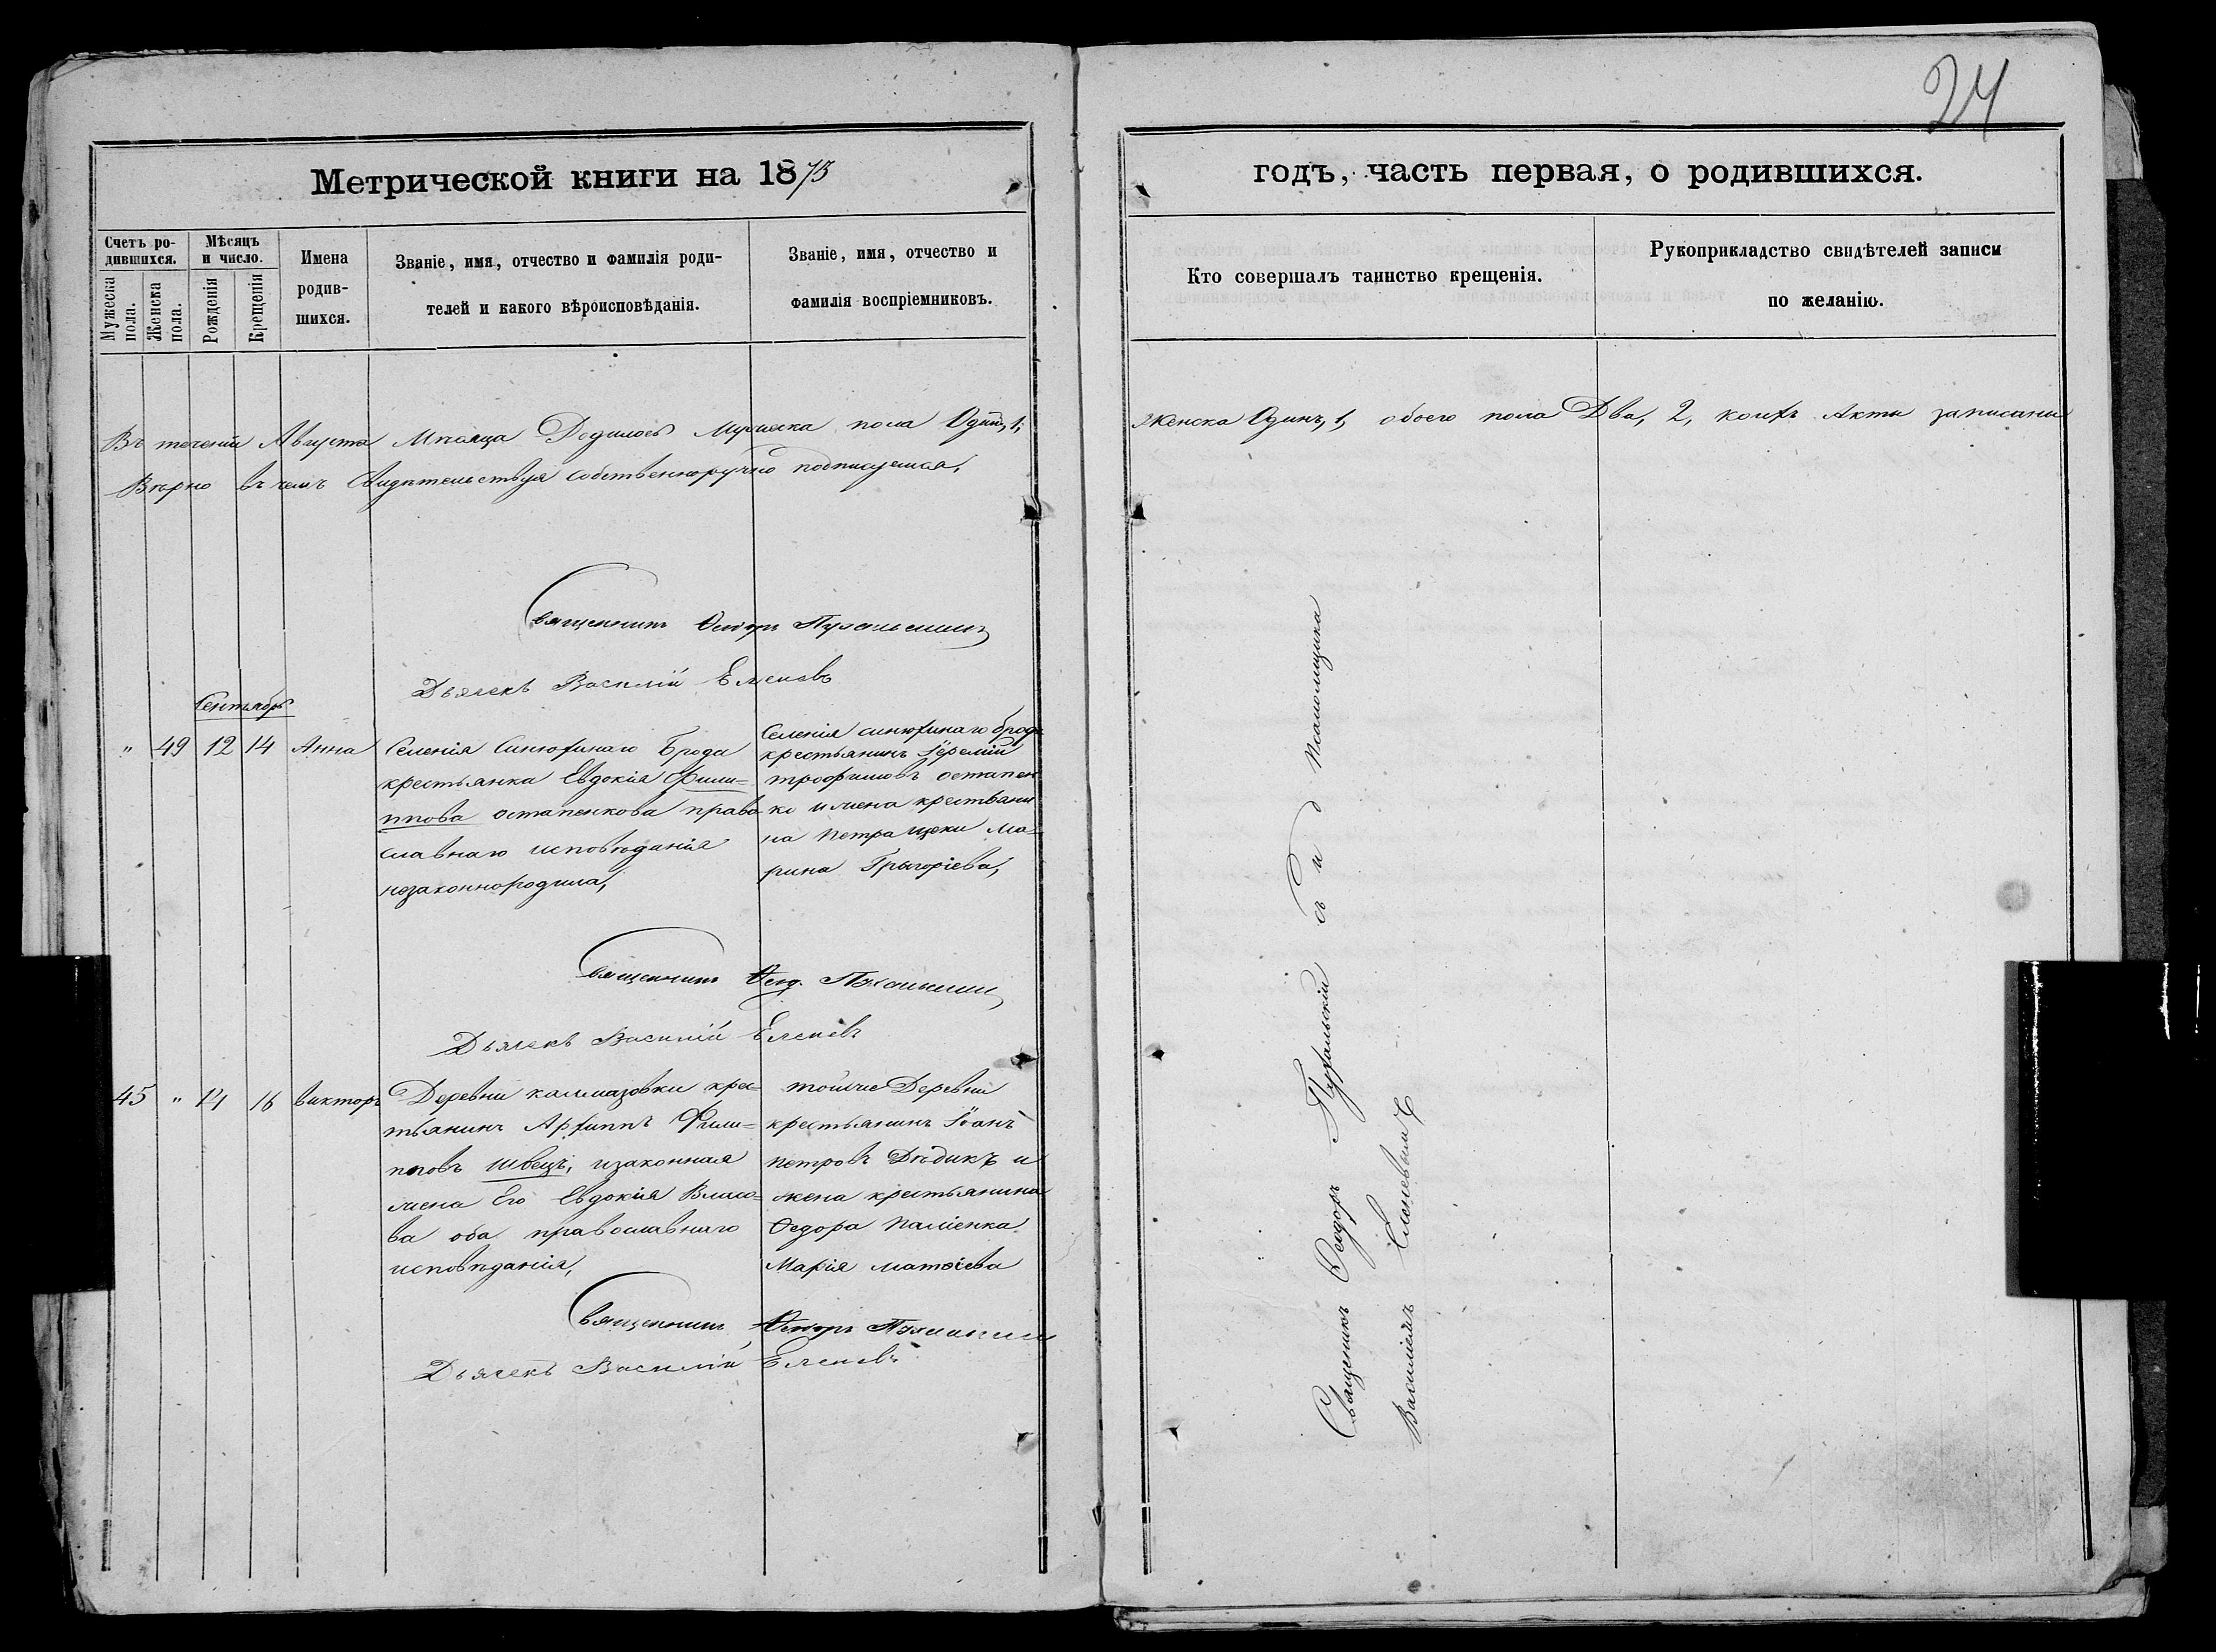 24
Метрической книги на 1875
годъ, часть первая, о родившихся.
Счетъ ро-
дившихся.
Мужеска пола.
Женска пола.
Мѣсяцъ
и число.
Рожденія
Крещенія
Имена
родив-
шихся.
Званіе, имя, отчество и фамилія роди-
телей и какого вѣроисповѣданія.
Званіе, имя, отчество и
фамилія воспріемниковъ.
Кто совершалъ таинство крещенія.
Рукоприкладство свидѣтелей записи
по желанію.
Въ теченіи Августа Мѣсяца Родилось Мужеска пола Одинъ, 1,
Женска Одинъ, 1, обоего пола Два, 2, коихъ Акты записаны
Вѣрно въ чемъ Свидѣтельствуя собственноручно подписуемся,
Священникъ Ѳеодоръ Пухальскій
Дьячекъ Василій Еленевъ
Сентябрь
" 49 12 14 Анна
Селенія Синюхинаго Брода
крестьянка Евдокія Фили=
ппова остапенкова право
славнаго исповѣданія
незаконнородила,
Селенія синюхинаго брода
крестьянинъ Іеремій
трофимовъ остапен
ко и жена крестьяни
на Петра щеки Ма=
рина Григоріева,
Священникъ Ѳеод. Пухальскій
Дьячекъ Василій Еленевъ
45 " 14 16 викторъ
Деревни калмазовки крес=
тьянинъ Архиппъ Фили=
повъ Швецъ, и законная
жена Его Евдокія Власо=
ва оба православнаго
исповѣданія,
тойже Деревни
крестьянинъ Іоанъ
петровъ Дѣдикъ и
жена крестьянина
Ѳедора Паліенка
Марія матѳіева
Священникъ Ѳеодоръ Пухальскій
Дьячекъ Василій Еленевъ
Священникъ Ѳеодоръ Пухальскій съ и д Псаломщика
Василіемъ Еленевымъ